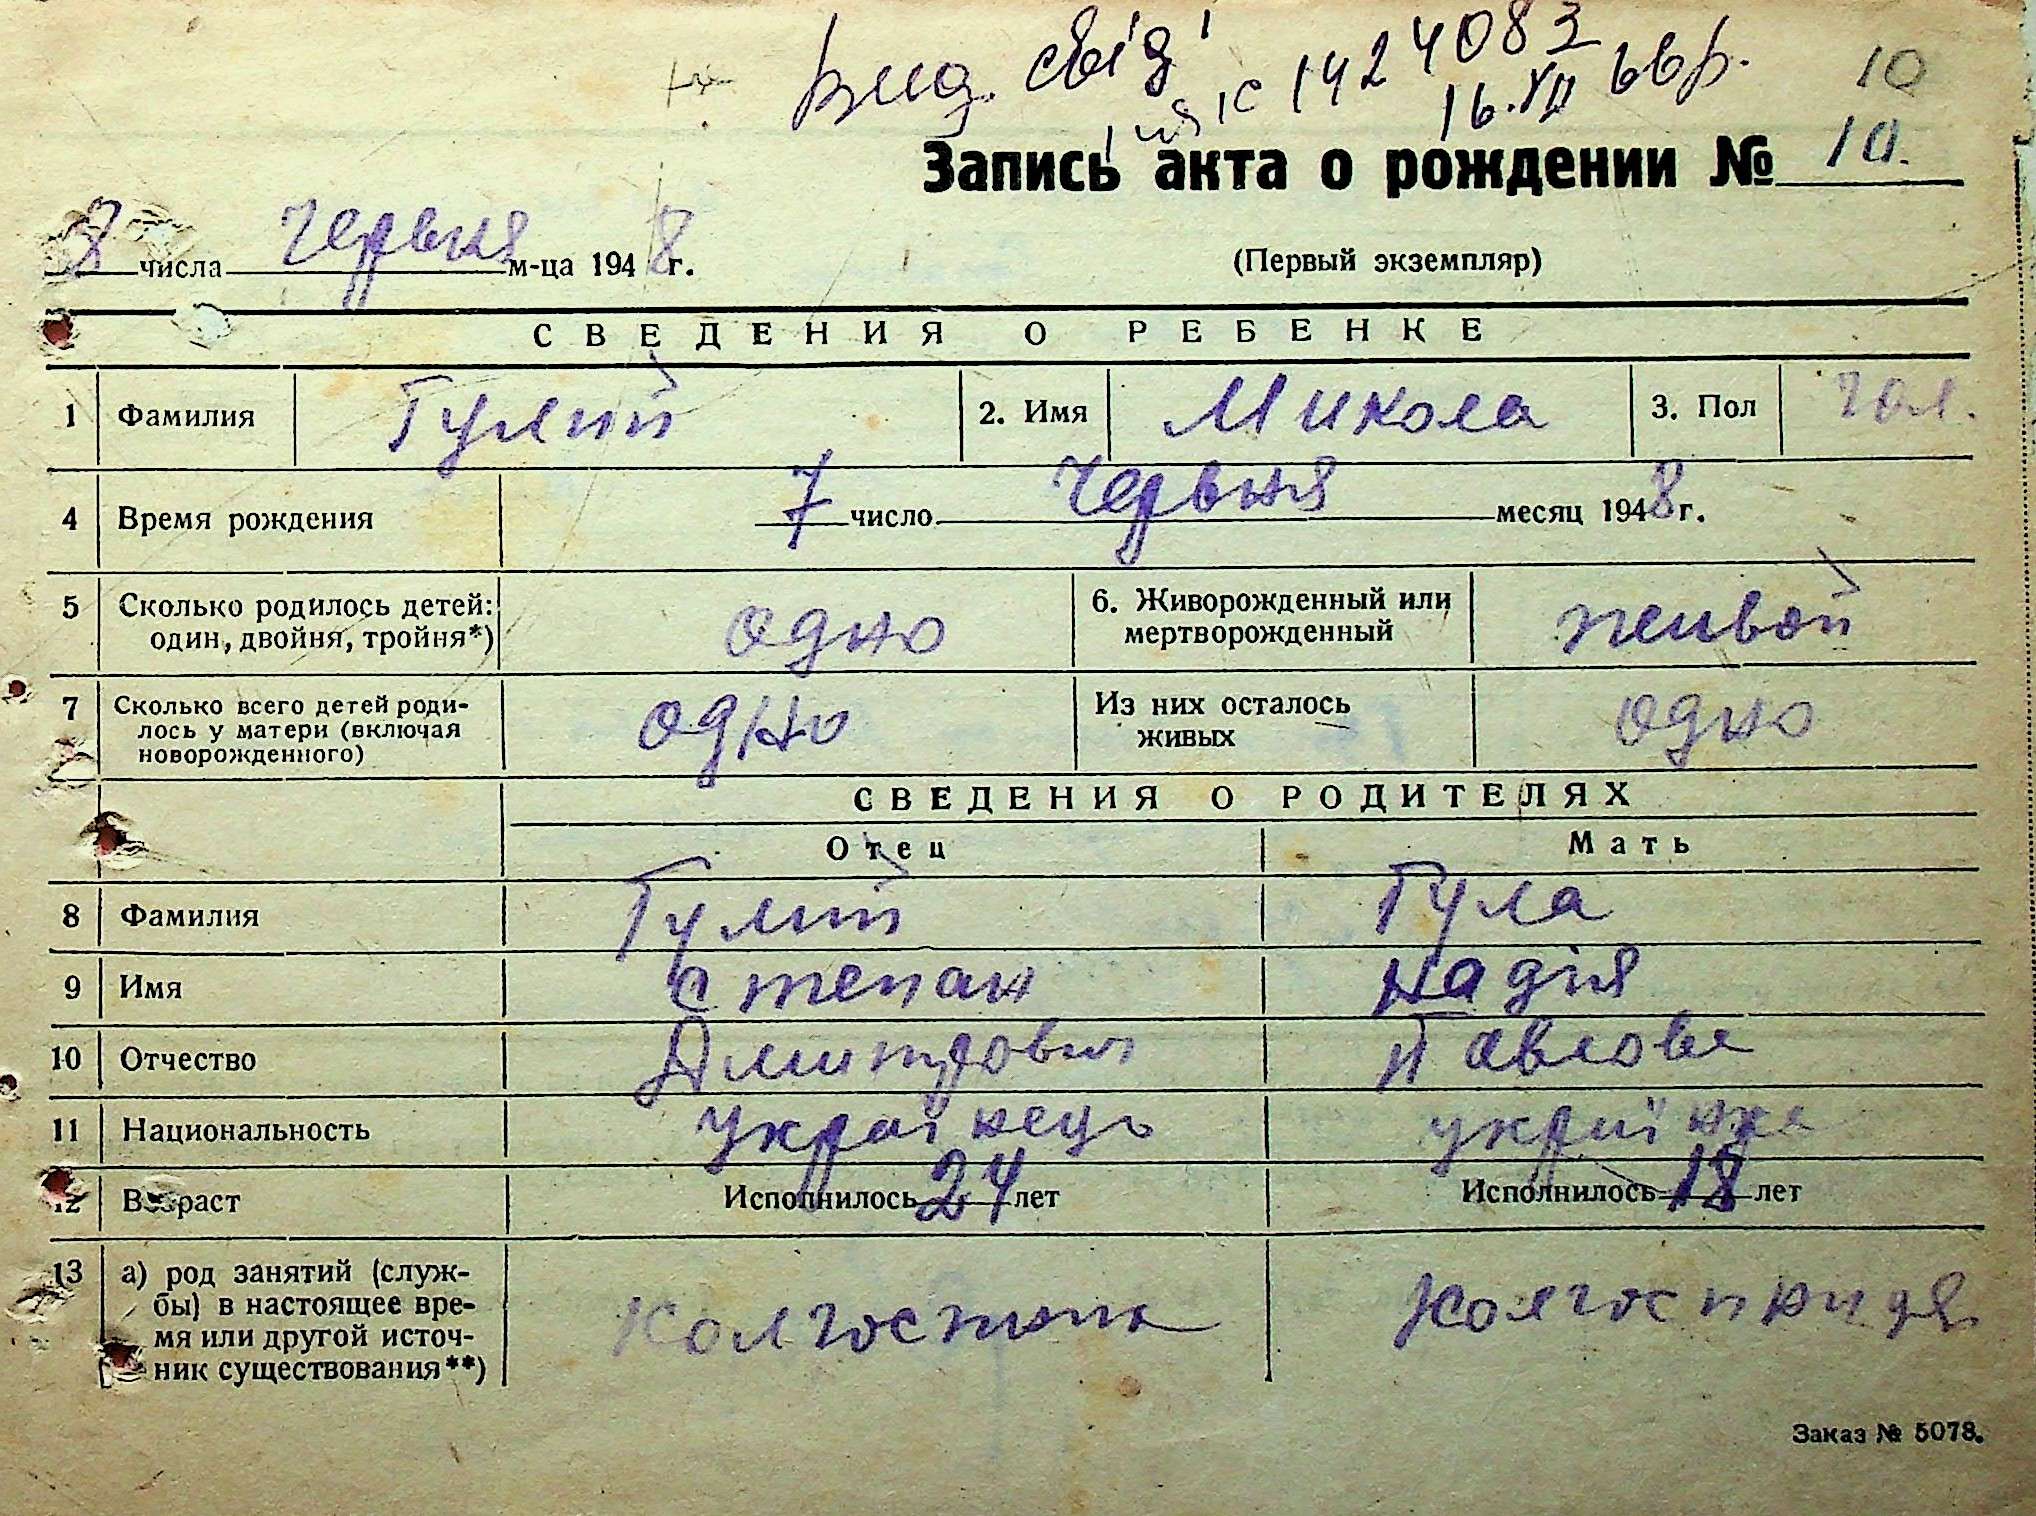 вид. свід 1424083
16.XII 66р.
10
Запись акта о рождении № 10.
8 числа червня м-ца 1948г.
(Первый экземпляр)
СВЕДЕНИЯ О РЕБЕНКЕ
1 Фамилия Гулий 2. Имя Микола 3. Пол чол.
4 Время рождения 7 число червня месяц 1948г.
5 Сколько родилось детей: один, двойня, тройня*) одно 6. Живорожденный или мертворожденный живой
7 Сколько всего детей роди-
лось у матери (включая
новорожденного) одно Из них осталось
живых одно
СВЕДЕНИЯ О РОДИТЕЛЯХ
Отец Мать
8 Фамилия Гулий Гула
9 Имя Степан Надія
10 Отчество Дмитрович Павлова
11 Национальность українець українка
12 Возраст Исполнилось 24 лет Исполнилось 18 лет
13 а) род занятий (служ-
бы) в настоящее вре-
мя или другой источ-
ник существования**) колгоспник колгоспниця
Заказ № 5078.